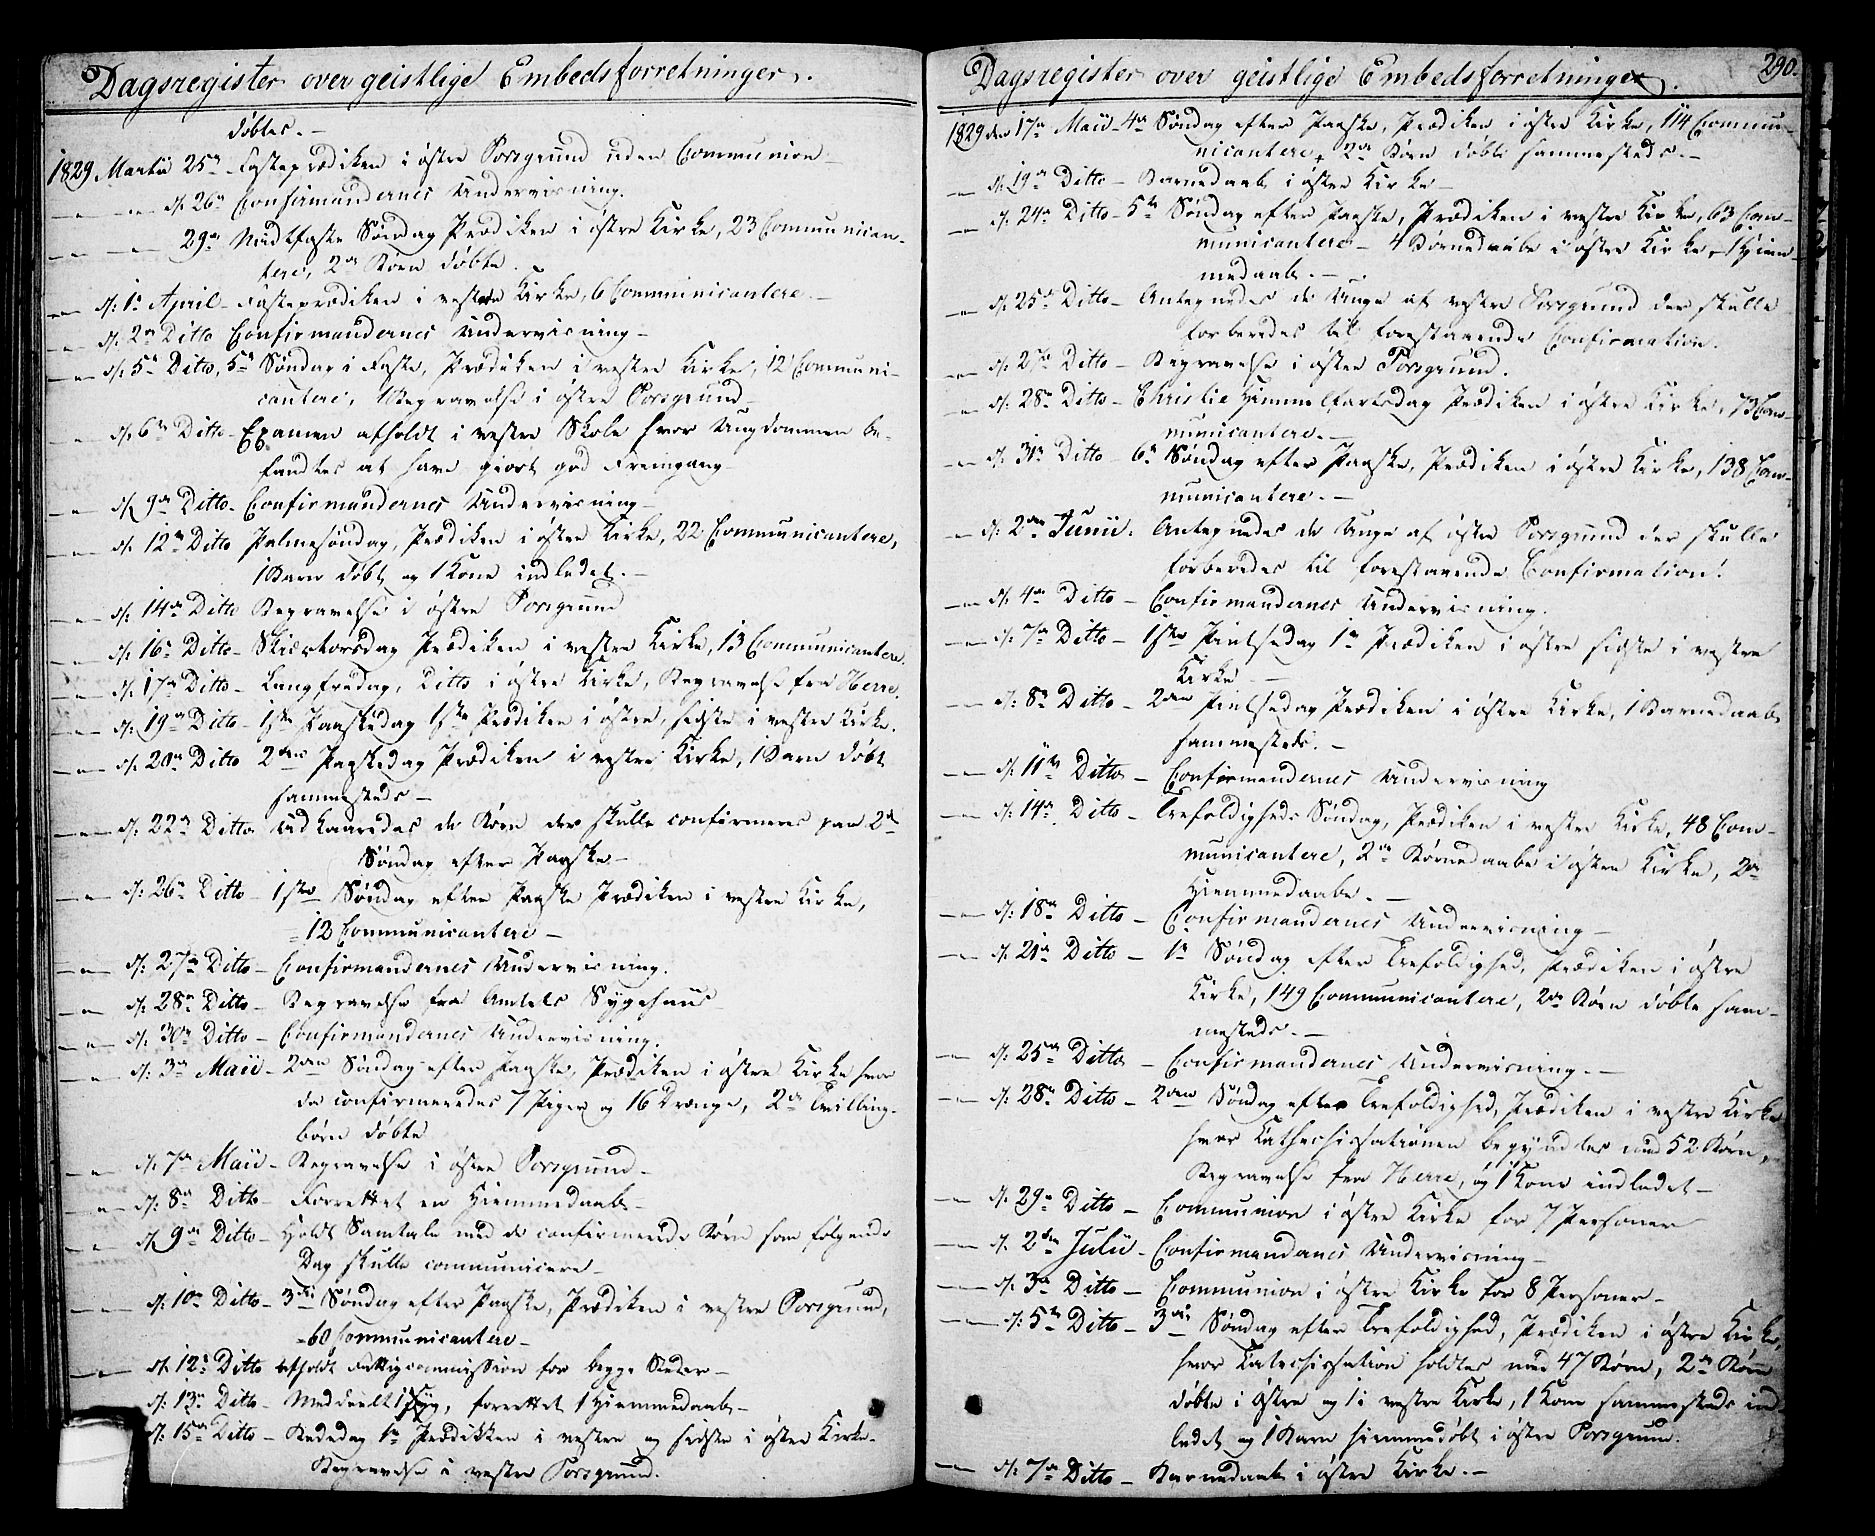 Dagsregister over geistlige Embedsforretninger.
døbtes. —
1829 Martii 25n Fasteprædiken i østre Porsgrund uden Communion —
— " — " d: 26n Confirmandernes Underviisning.
— " — 29n Midtfaste Søndag Prædiken i østre Kirke, 23 Communican-
tere, 2n Børn døbte.
— " — d: 1n April — Fasteprædiken i vestre Kirke, 6 Communicantere —
— " — d: 2n Ditto Confirmandernes Underviisning —
— " — d: 5n Ditto, 5n Søndag i Faste, Prædiken i vestre Kirke, 12 Communi-
cantere, 1 Begravelse i østre Porsgrund —
— " — d: 6n Ditto — Examen afholdt i vestre Skole hvor Ungdommen be-
fandtes at have giort god Fremgang —
— " — d: 9n Ditto — Confirmandernes Underviisning —
— " — d: 12n Ditto Palmesøndag, Prædiken i østre Kirke, 22 Communicantere,
1 Barn døbt og 1 Kone indledet. —
— " — d: 14n Ditto Begravelse i østre Porsgrund
— " — d: 16n Ditto — Skiærtorsdag Prædiken i vestre Kirke, 13 Communicantere.
— " — d: 17n Ditto — Langfredag, Ditto i østre Kirke, Begravelse fra Herre.
— " — d: 19n Ditto — 1ste Paaskedag 1ste Prædiken i østre, sidste i vestre Kirke.
— " — d: 20n Ditto 2den Paaskedag Prædiken i vestre Kirke, 1 Barn døbt
sammesteds —
— " — d: 22n Ditto Udkaaredes de Børn der skulle confirmeres paa 2d
Søndag efter Paaske —
— " — d: 26n Ditto — 1ste Søndag efter Paaske Prædiken i vestre Kirke,
12 Communicantere —
— " — d: 27n Ditto — Confirmandernes Underviisning.
— " — d: 28n Ditto — Begravelse fra Amtets Sygehuus
— " — d: 30n Ditto — Confirmandernes Underviisning.
— " — d: 3n Maii — 2den Søndag efter Paaske, Prædiken i østre Kirke hvor
da confirmeredes 7 Piger og 16 Drenge, 2n Tvilling-
børn døbte
— " — d: 7n Maii — Begravelse i østre Porsgrund —
— " — d: 8n Ditto — Forrettet en Hiemmedaab —
— " — d: 9n Ditto — Holdt Samtale med de confirmerede Børn som følgende
Dag skulle communicere —
— " — d: 10n Ditto — 3die Søndag efter Paaske, Prædiken i vestre Porsgrund,
60 Communicantere —
— " — d: 12n Ditto afholdt Fattigcommission for begge Steder —
d: 13n Ditto — Meddeelt 1 Syg, forrettet 1 Hiemmedaab —
d: 15n Ditto — Bededag 1n Prædikken i vestre og sidste i østre Kirke.
Begravelse i vestre Porsgrund.
Dagsregister over geistlige Embedsforretninger.
290.
1829 den 17n Maii — 4n Søndag efter Paaske, Prædiken i østre Kirke, 114 Commu-
nicantere, 2n Børn døbte sammesteds. —
— " — d: 19n Ditto — Barnedaab i østre Kirke —
— " — d: 24n Ditto — 5te Søndag efter Paaske, Prædiken i vestre Kirke, 63 Com-
municantere — 4 Børnedaabe i østre Kirke, 1 Hiem-
medaab. —
— " — d: 25n Ditto — Antegnedes de Unge af vestre Porsgrund der skulle
forberedes til forestaaende Confirmation.
— " — d: 27n Ditto — Begravelse i østre Porsgrund.
— " — d: 28n Ditto — Christie Himmelfartsdag Prædiken i østre Kirke, 73 Com-
municantere. —
— " — d: 31n Ditto — 6n Søndag efter Paaske, Prædiken i østre Kirke, 138 Com-
municantere. —
— " — d: 2den Junii. Antegnedes de Unge af østre Porsgrund der skulle
forberedes til forestaaende Confirmation!
— " — d: 4n Ditto — Confirmandernes Underviisning.
— " — d: 7n Ditto — 1ste Pintsedag 1n Prædiken i østre sidste i vestre
Kirke —
— " — d: 8n Ditto — 2den Pintsedag Prædiken i østre Kirke, 1 Barnedaab
sammesteds. —
— " — d: 11te Ditto — Confirmandernes Underviisning
— " — d: 14n Ditto — Trefoldigheds Søndag, Prædiken i vestre Kirke, 48 Com-
municantere, 2n Børnedaabe i østre Kirke, 2n
Hiemmedaabe. —
— " — d: 18n Ditto — Confirmandernes Underviisning —
— " — d: 21n Ditto — 1n Søndag efter Trefoldighed, Prædiken i østre
Kirke, 149 Communicantere, 2n Børn døbte sam-
mesteds. —
— " — d: 25n Ditto — Confirmandernes Underviisning. —
— " — d: 28n Ditto — 2den Søndag efter Trefoldighed, Prædiken i vestre Kirke
hvor Kathechisationen begyndtes med 52 Børn,
Begravelse fra Herre, og 1 Kone indledet —
— " — d: 29n Ditto — Communion i østre Kirke for 7 Personer
— " — d: 2den Julii — Confirmandernes Underviisning —
— " — d: 3n Ditto — Communion i østre Kirke for 8 Personer —
— " — d: 5te Ditto — 3die Søndag efter Trefoldighed, Prædiken i østre Kirke,
hvor Catechisation holdtes med 47 Børn, 2n Børn
døbte i østre og 1 i vestre Kirke, 1 Kone sammesteds ind-
ledet og 1 Barn hiemmedøbt i østre Porsgrund.
— " — d: 7n Ditto — Barnedaab i østre Kirke. —